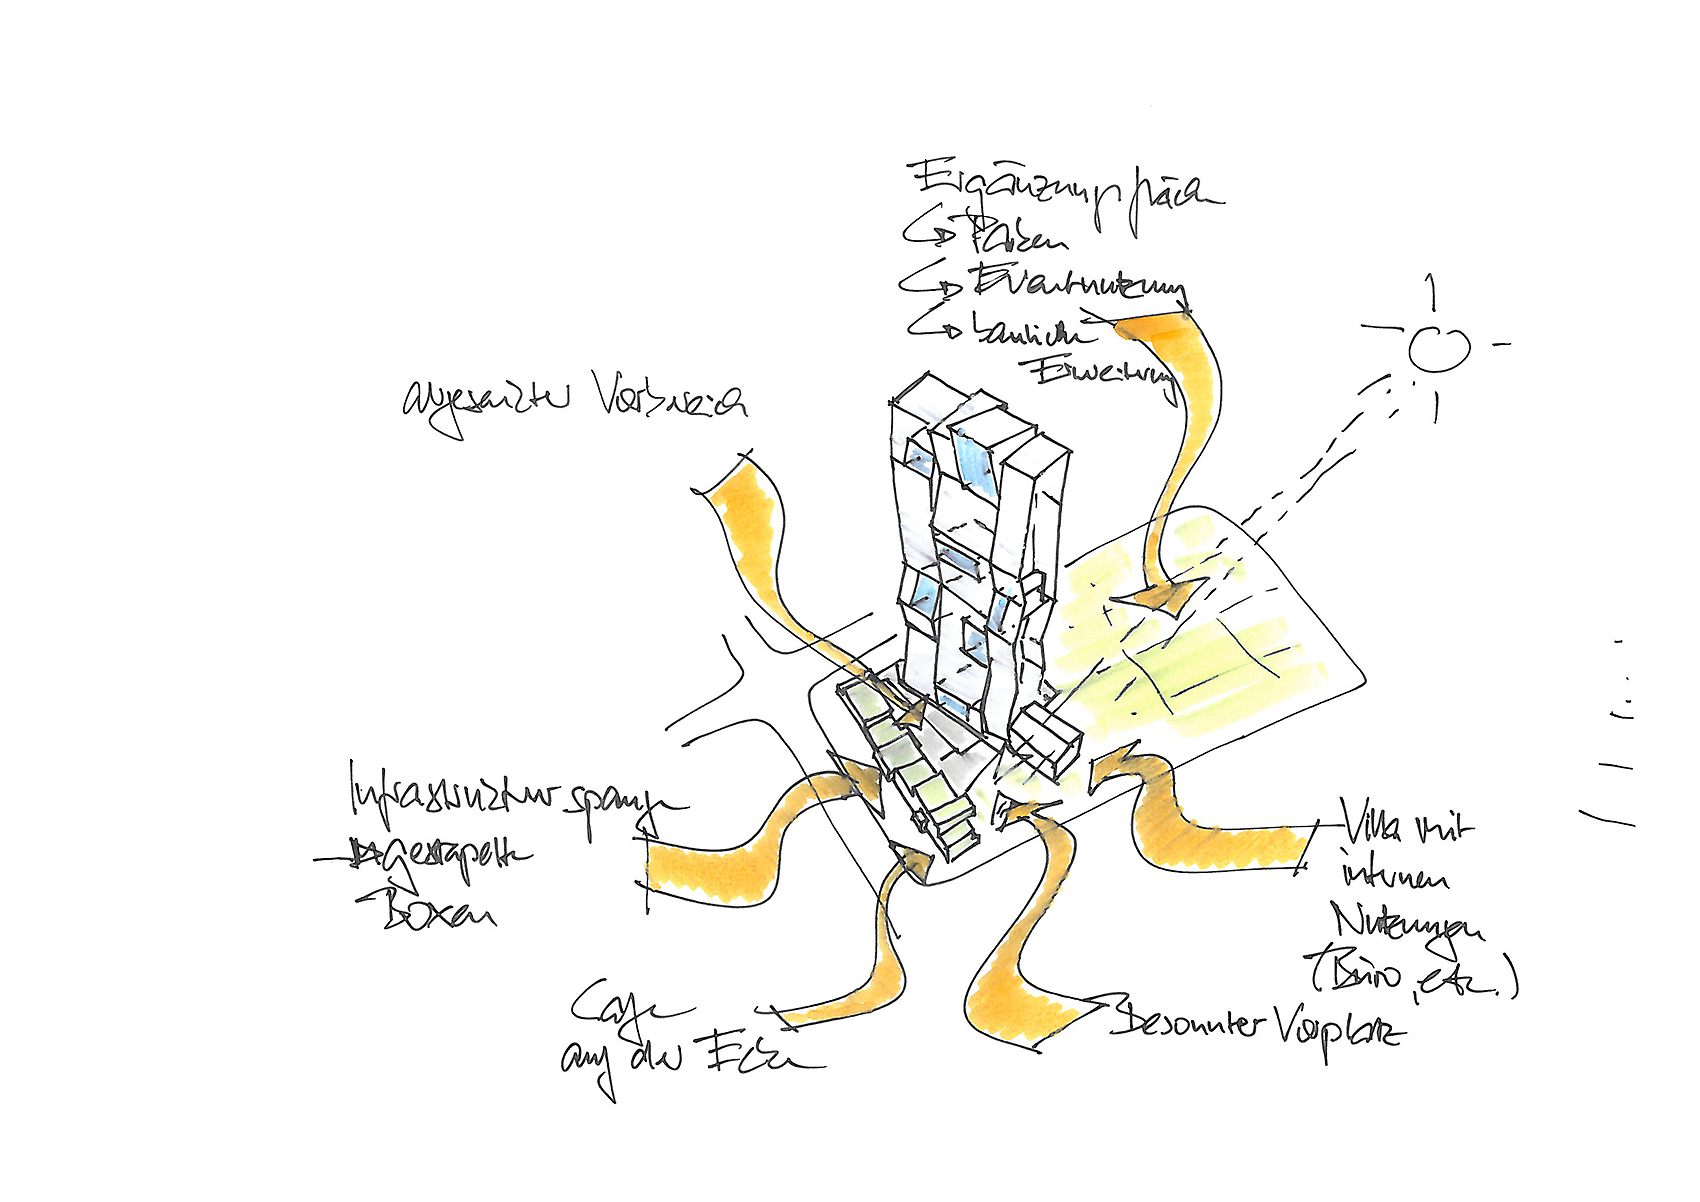 Ergänzungsfläche
Parken
Eventnutzung
bauliche
Erweiterung
abgesenkter Vorbereich
Infrastrukturspange
gestapelte
Boxen
Cafe
auf der Ecke
Besonnter Vorplatz
Villa mit
internen
Nutzungen
(Büro, etc.)